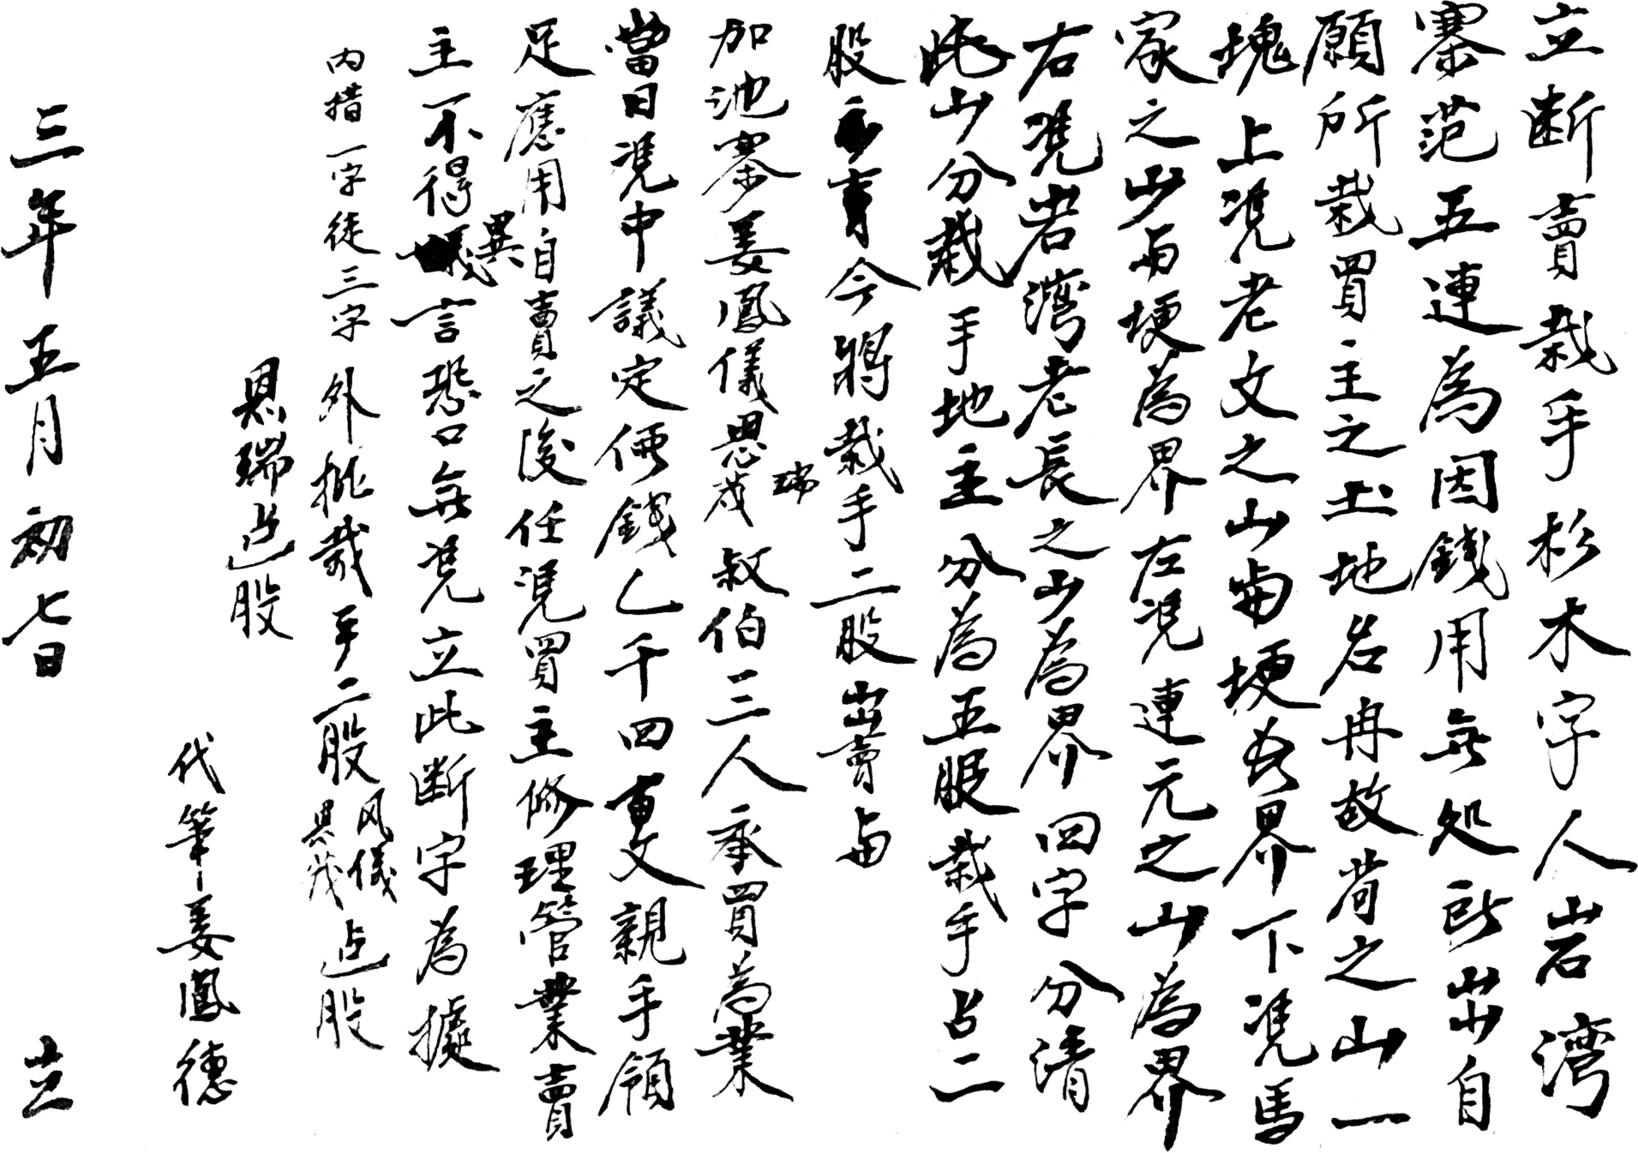 立断賣栽手杉木字人岩湾
寨范五連為因錢用無処所出自
願所栽買主之土地名冉故荷之山一
塊上凭老文之山與埂為界下凭馬
家之山與埂為界左凭連元之山為界
右凭岩湾老長之山為界四字分清
此山分栽手地主分為五股栽手占二
股今將栽手二股出賣與
加池寨姜鳳儀恩茂瑞叔伯三人承買為業
當日凭中議定價錢乙千四百文親手領
足應用自賣之後任凭買主修理管業賣
主不得異言恐口無凭立此断字為據
内措一字徒三字外批栽手二股风儀恩茂占股
恩瑞占股
代筆姜鳳德
三年五月初七日立